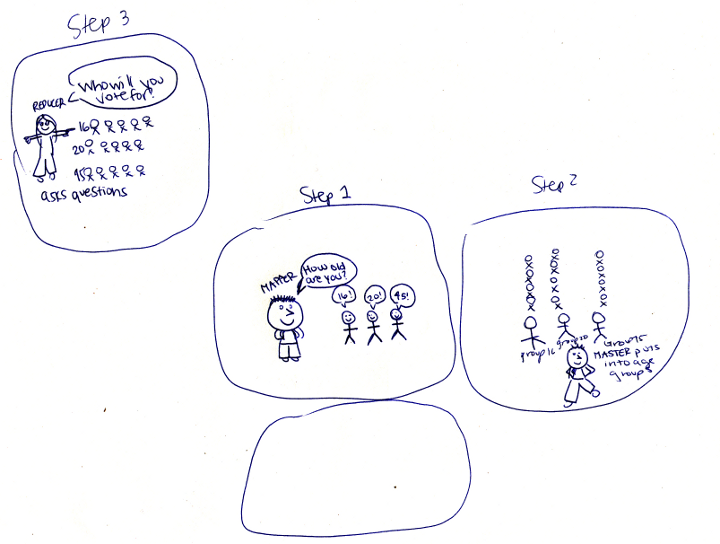 Step 3
Who will you
vote for?
REDUCER
16
20
45
asks questions
Step 1
MAPPER
How old
are you?
16!
20!
45!
Step 2
group 16
group 20
group 45
MASTER puts
into age
groups